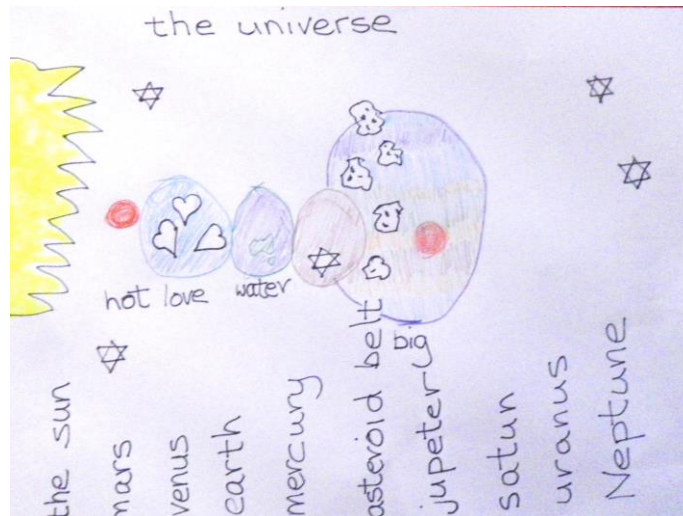 the universe
hot love
water
big
the sun
mars
venus
earth
mercury
asteroid belt
jupetery
satun
uranus
Neptune